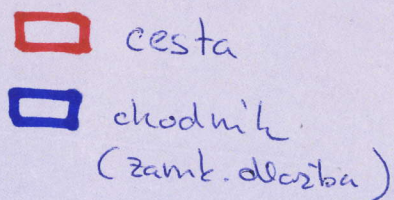 cesta
chodník
(zamk. dlažba)